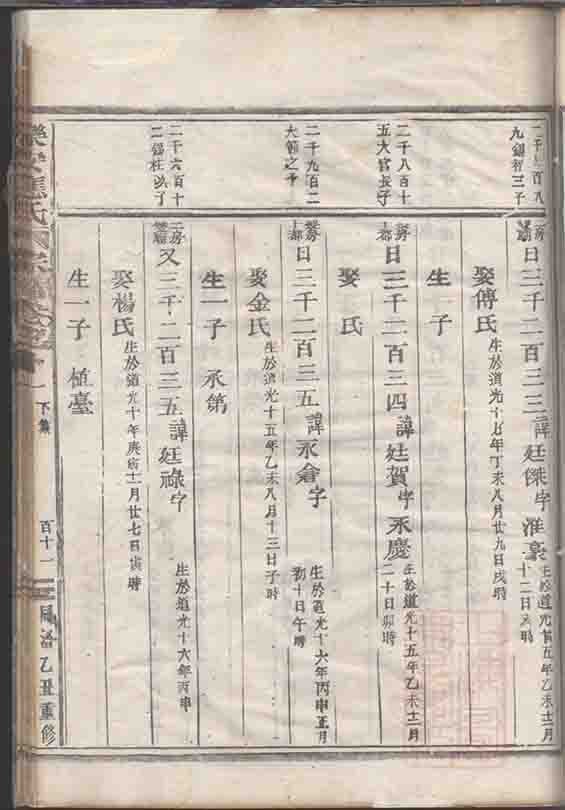 九錫智三子
日三千二百三三諱廷傑字淮
生於道光十五年乙未十二月
十二日未時
娶傅氏
生於道光十七年丁未八月廿九日戌時
生子
二千八百十
五大官長子
日三千二百三四諱廷賀字永慶
生於道光十五年乙未十二月
二十日卯時
娶 氏
二千九百二
大節之子
日三千二百三五諱永會字
生於道光十六年丙申正月
初十日午時
娶金氏
生於道光十五年乙未八月十三日子時
生一子 永第
二千六百十
二錫柱次子
又三千二百三五諱廷祿字
生於道光十六年丙申
娶楊氏
生於道光十年庚寅十一月廿七日寅時
生一子 植臺
下集
百十一
同治乙丑重修